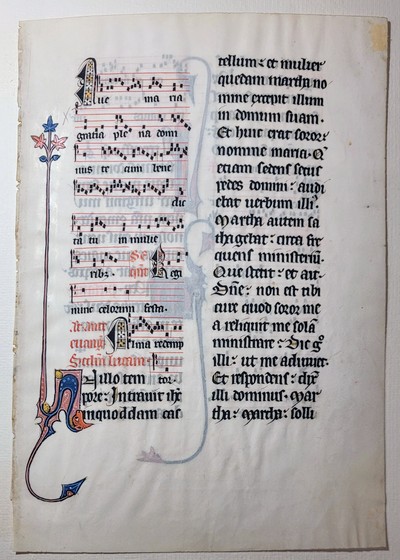 Aue ma ria
gratia ple na domi
nus te cum bene
dic
ta tu in mulie
ribz. Regi
nunc celorum festa.
Alma redemp
euangͥ
Scdm lucam. tor
N illo tem
pore: Intrauit ihc
in quoddam cas
tellum: et mulier
quedam martha no
mine excepit illum
in domum suam.
Et huic erat soror:
nomine maria. Q̅
eciam sedens secus
pedes domini: audi
ebat uerbum illiꝰ.
Martha autem sa
thagebat: circa fre
quens ministeriū.
Que stetit: et ait.
Dn̅e: non est tibi
cure quod soror me
a reliquit me solā
ministrare: Dic gͦ
illi: ut me adiuuet.
Et respondens: dix̅
illi dominus. Mar
tha: martha: solli